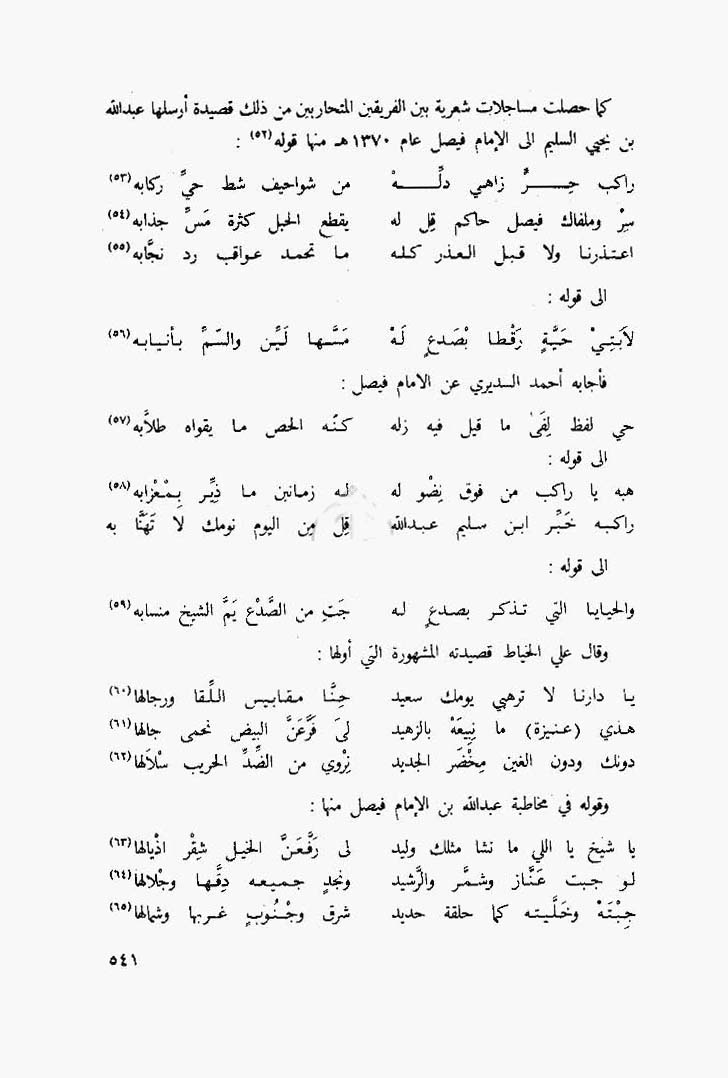 كما حصلت مساجلات شعرية بين الفريقين المتحاربين من ذلك قصيدة أرسلها عبدالله
بن يحيي السليم الى الإمام فيصل عام ١٣٧٠هـ منها قوله(٥٢) :
راكب حِـــرٍّ زاهي دلِّـــهْ من شواحيف شط حيِّ ركابه(٥٣)
سِرْ وملفاك فيصل حاكم قِل له يقطع الحبل كثرة مَسِّ جذابه(٥٤)
اعتذرنا ولا قبل العذر كله ما تحمد عواقب رد نجَّابه(٥٥)
الى قوله :
لاَبَتِيْ حَيَّةٍ رَقْطا بْصَدعٍ لَهْ مَسَّها لَيِّن والسّمِّ بأنيابه(٥٦)
فأجابه أحمد السديري عن الامام فيصل :
حي لفظ لِفَىٰ ما قيل فيه زله كنّه الحص ما يقواه طلاَّبه(٥٧)
الى قوله :
هبه يا راكب من فوق نِضْو له له زمانين ما ذِيِّر بِمْعْزابه(٥٨)
راكبه خَبِّر ابن سليم عبدالله قِلْ مِن اليوم نومك لا تَهَنَّا به
الى قوله :
والحيايا التي تذكر بصدعٍ له جَتِ من الصَّدْع يَمَّ الشيخ منسابه(٥٩)
وقال علي الخياط قصيدته المشهورة التي أولها :
يا دارنا لا ترهبي يومك سعيد حِنَّا مقابيس اللّقا ورجالها(٦٠)
هذي (عنيزة) ما نِبِيعَهْ بالزهيد لىَ فَرَّعَنَّ البيض نحمى جالها(٦١)
دونك ودون الغين مِخْضَر الجديد نِرْوي من الضِّدِّ الحريب سْلاَلها(٦٢)
وقوله في مخاطبة عبدالله بن الإمام فيصل منها :
يا شيخ يا اللي ما نشا مثلك وليد لى رَفَّعَنَّ الخيل شِقْر اذْيالها(٦٣)
لو جبت عَنَّاز وشمَّر والرَّشيد ونجدٍ جميعه دِقَّها وجْلالها(٦٤)
جِبْتَهْ وخَلَّيته كما حلقة حديد شرق وجْنُوبٍ غربها وشمالها(٦٥)
٥٤١